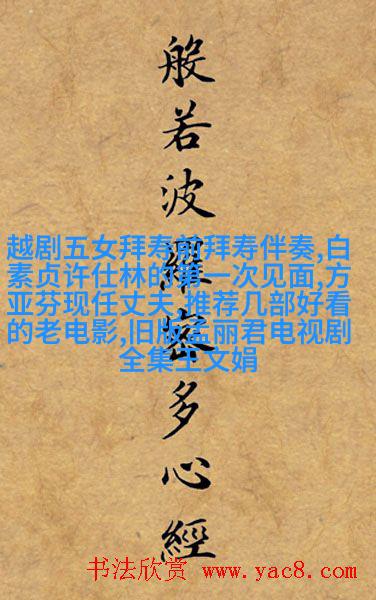 般若波羅密多心經
越剧五女拜寿前拜寿伴奏,白
素贞许仕林的第一次见面,方
亚芬现任丈夫,推荐几部好看
的老电影,旧版孟丽君电视剧
全集王文娟
书法欣赏 www.yac8.com